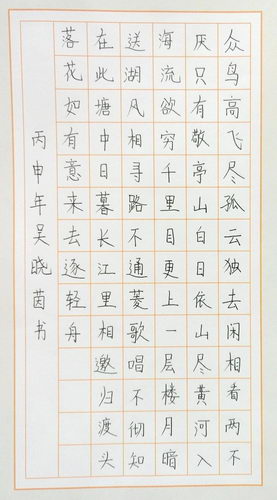 众鸟高飞尽孤云独去闲相看两不
厌只有敬亭山白日依山尽黄河入
海流欲穷千里目更上一层楼月暗
送湖风相寻路不通菱歌唱不彻知
在此塘中日暮长江里相邀归渡头
落花如有意来去逐轻舟
丙申年吴晓茵书